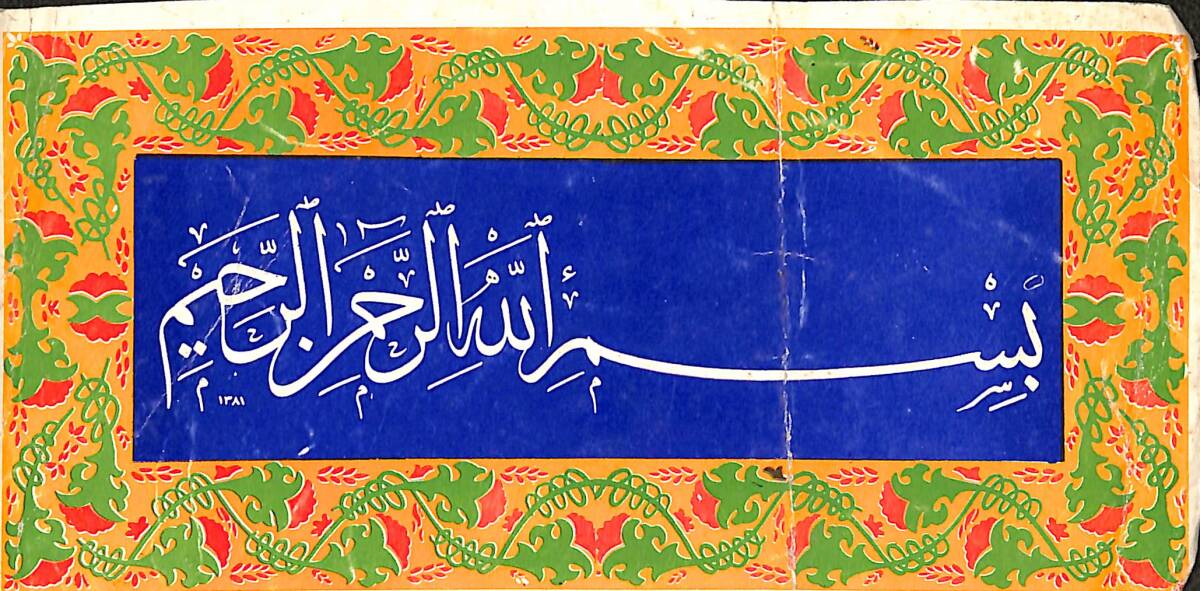 بِسْمِ ٱللَّهِ ٱلرَّحْمَٰنِ ٱلرَّحِيمِ
١٣٨١